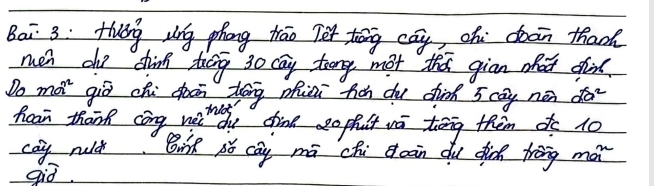 Bài 3: Hưởng ứng phong trào Tết trồng cây, chi đoàn thanh
niên dự định trồng 30 cây trong một thời gian nhất định.
Do mỗi giờ chi đoàn trồng nhiều hơn dự định 5 cây nên đã
hoàn thành công việc trước dự định 20 phút và trồng thêm đc 10
cây nữa. Tính số cây mà chi đoàn dự định trồng mỗi
giờ.